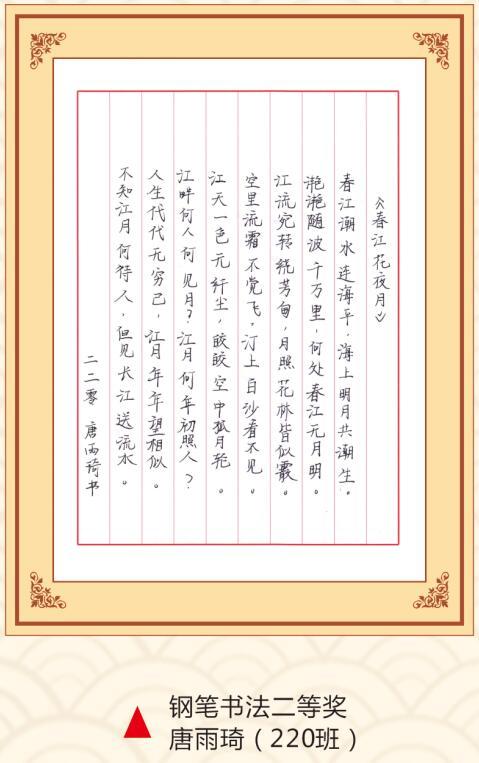 《春江花夜月》
春江潮水连海平，海上明月共潮生。
滟滟随波千万里，何处春江无月明。
江流宛转绕芳甸，月照花林皆似霰。
空里流霜不觉飞，汀上白沙看不见。
江天一色无纤尘，皎皎空中孤月轮。
江畔何人何见月？江月何年初照人？
人生代代无穷已，江月年年望相似。
不知江月何待人，但见长江送流水。
二二零 唐雨琦书
▲ 钢笔书法二等奖
唐雨琦（220班）